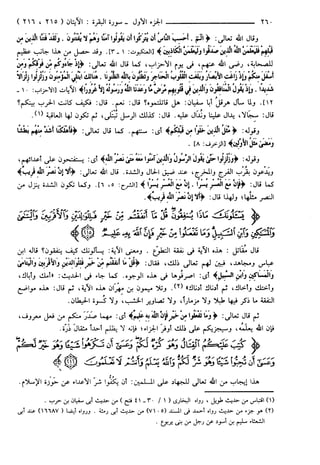 ٢٦٠ ــــــــ الجزء الأول ـ سورة البقرة : الآيتان ( ٢١٥ ، ٢١٦ )
وقال الله تعالى: ﴿الٓمٓ . أَحَسِبَ النَّاسُ أَنْ يُتْرَكُوا أَنْ يَقُولُوا آمَنَّا وَهُمْ لَا يُفْتَنُونَ . وَلَقَدْ فَتَنَّا الَّذِينَ مِنْ
قَبْلِهِمْ فَلَيَعْلَمَنَّ اللهُ الَّذِينَ صَدَقُوا وَلَيَعْلَمَنَّ الْكَاذِبِينَ﴾ [العنكبوت: ١ ـ ٣]. وقد حصل من هذا جانب عظيم
للصحابة، رضي الله عنهم، في يوم الأحزاب، كما قال الله تعالى: ﴿إِذْ جَاءُوكُمْ مِنْ فَوْقِكُمْ وَمِنْ
أَسْفَلَ مِنْكُمْ وَإِذْ زَاغَتِ الْأَبْصَارُ وَبَلَغَتِ الْقُلُوبُ الْحَنَاجِرَ وَتَظُنُّونَ بِاللهِ الظُّنُونَا . هُنَالِكَ ابْتُلِيَ الْمُؤْمِنُونَ وَزُلْزِلُوا زِلْزَالًا
شَدِيدًا . وَإِذْ يَقُولُ الْمُنَافِقُونَ وَالَّذِينَ فِي قُلُوبِهِمْ مَرَضٌ مَا وَعَدَنَا اللهُ وَرَسُولُهُ إِلَّا غُرُورًا﴾ الآيات [الأحزاب: ١٠ ـ
١٢]. ولما سأل هرقلُ أبا سفيان: هل قاتلتموه؟ قال: نعم. قال: فكيف كانت الحرب بينكم؟
قال: سِجَالًا، يدال علينا ونُدَال عليه. قال: كذلك الرسل تُبْتَلى، ثم تكون لها العاقبة (١).
وقوله: ﴿مَثَلُ الَّذِينَ خَلَوْا مِنْ قَبْلِكُمْ﴾ أي: سنتهم. كما قال تعالى: ﴿فَأَهْلَكْنَا أَشَدَّ مِنْهُمْ بَطْشًا
وَمَضَى مَثَلُ الْأَوَّلِينَ﴾ [الزخرف: ٨].
وقوله: ﴿وَزُلْزِلُوا حَتَّى يَقُولَ الرَّسُولُ وَالَّذِينَ آمَنُوا مَعَهُ مَتَى نَصْرُ اللهِ﴾ أي: يستفتحون على أعدائهم،
ويَدْعون بقُرْب الفرج والمخرج، عند ضيق الحال والشدة. قال الله تعالى: ﴿أَلَا إِنَّ نَصْرَ اللهِ قَرِيبٌ﴾
كما قال: ﴿فَإِنَّ مَعَ الْعُسْرِ يُسْرًا . إِنَّ مَعَ الْعُسْرِ يُسْرًا﴾ [الشرح: ٥، ٦]. وكما تكون الشدة ينزل من
النصر مثلُها؛ ولهذا قال: ﴿أَلَا إِنَّ نَصْرَ اللهِ قَرِيبٌ﴾.
﴿يَسْـَٔلُونَكَ مَاذَا يُنفِقُونَ قُلْ مَآ أَنفَقْتُم مِّنْ خَيْرٍ فَلِلْوَٰلِدَيْنِ وَٱلْأَقْرَبِينَ
وَٱلْيَتَٰمَىٰ وَٱلْمَسَٰكِينِ وَٱبْنِ ٱلسَّبِيلِ وَمَا تَفْعَلُوا۟ مِنْ خَيْرٍ فَإِنَّ ٱللَّهَ بِهِۦ عَلِيمٌ﴾
قال مُقَاتل : هذه الآية في نفقة التطوّع . ومعنى الآية: يسألونك كيف ينفقون؟ قاله ابن
عباس ومجاهد، فبين لهم تعالى ذلك، فقال: ﴿قُلْ مَا أَنْفَقْتُمْ مِنْ خَيْرٍ فَلِلْوَالِدَيْنِ وَالْأَقْرَبِينَ وَالْيَتَامَى
وَالْمَسَاكِينِ وَابْنِ السَّبِيلِ﴾ أي: اصرفُوها في هذه الوجوه. كما جاء في الحديث: «أمك وأباك،
وأختك وأخاك، ثم أدناك أدناك» (٢). وتلا ميمون بن مِهْرَان هذه الآية، ثم قال: هذه مواضع
النفقة ما ذكر فيها طبلا ولا مزمارا، ولا تصاوير الخشب، ولا كُسوة الحيطان.
ثم قال تعالى: ﴿وَمَا تَفْعَلُوا مِنْ خَيْرٍ فَإِنَّ اللهَ بِهِ عَلِيمٌ﴾ أي: مهما صَدَرَ منكم من فعل معروف،
فإن الله يعلمُه، وسيجزيكم على ذلك أوفرَ الجزاء؛ فإنه لا يظلم أحداً مثقالَ ذَرّة.
﴿كُتِبَ عَلَيْكُمُ ٱلْقِتَالُ وَهُوَ كُرْهٌ لَّكُمْ وَعَسَىٰٓ أَن تَكْرَهُوا۟ شَيْـًٔا وَهُوَ خَيْرٌ لَّكُمْ
وَعَسَىٰٓ أَن تُحِبُّوا۟ شَيْـًٔا وَهُوَ شَرٌّ لَّكُمْ وَٱللَّهُ يَعْلَمُ وَأَنتُمْ لَا تَعْلَمُونَ﴾
هذا إيجاب من الله تعالى للجهاد على المسلمين: أن يكُفُّوا شرّ الأعداء عن حَوْزة الإسلام.
(١) اقتباس من حديث طويل ، رواه البخاري ( ١ / ٣٠ ـ ٤١ فتح ) من حديث أبي سفيان بن حرب .
(٢) هو جزء من حديث رواه أحمد في المسند (٧١٠٥) من حديث أبي رمثة . ورواه أيضا (١٦٦٨٧) عند أبي
الشعثاء سليم بن أسود عن رجل من بني يربوع .